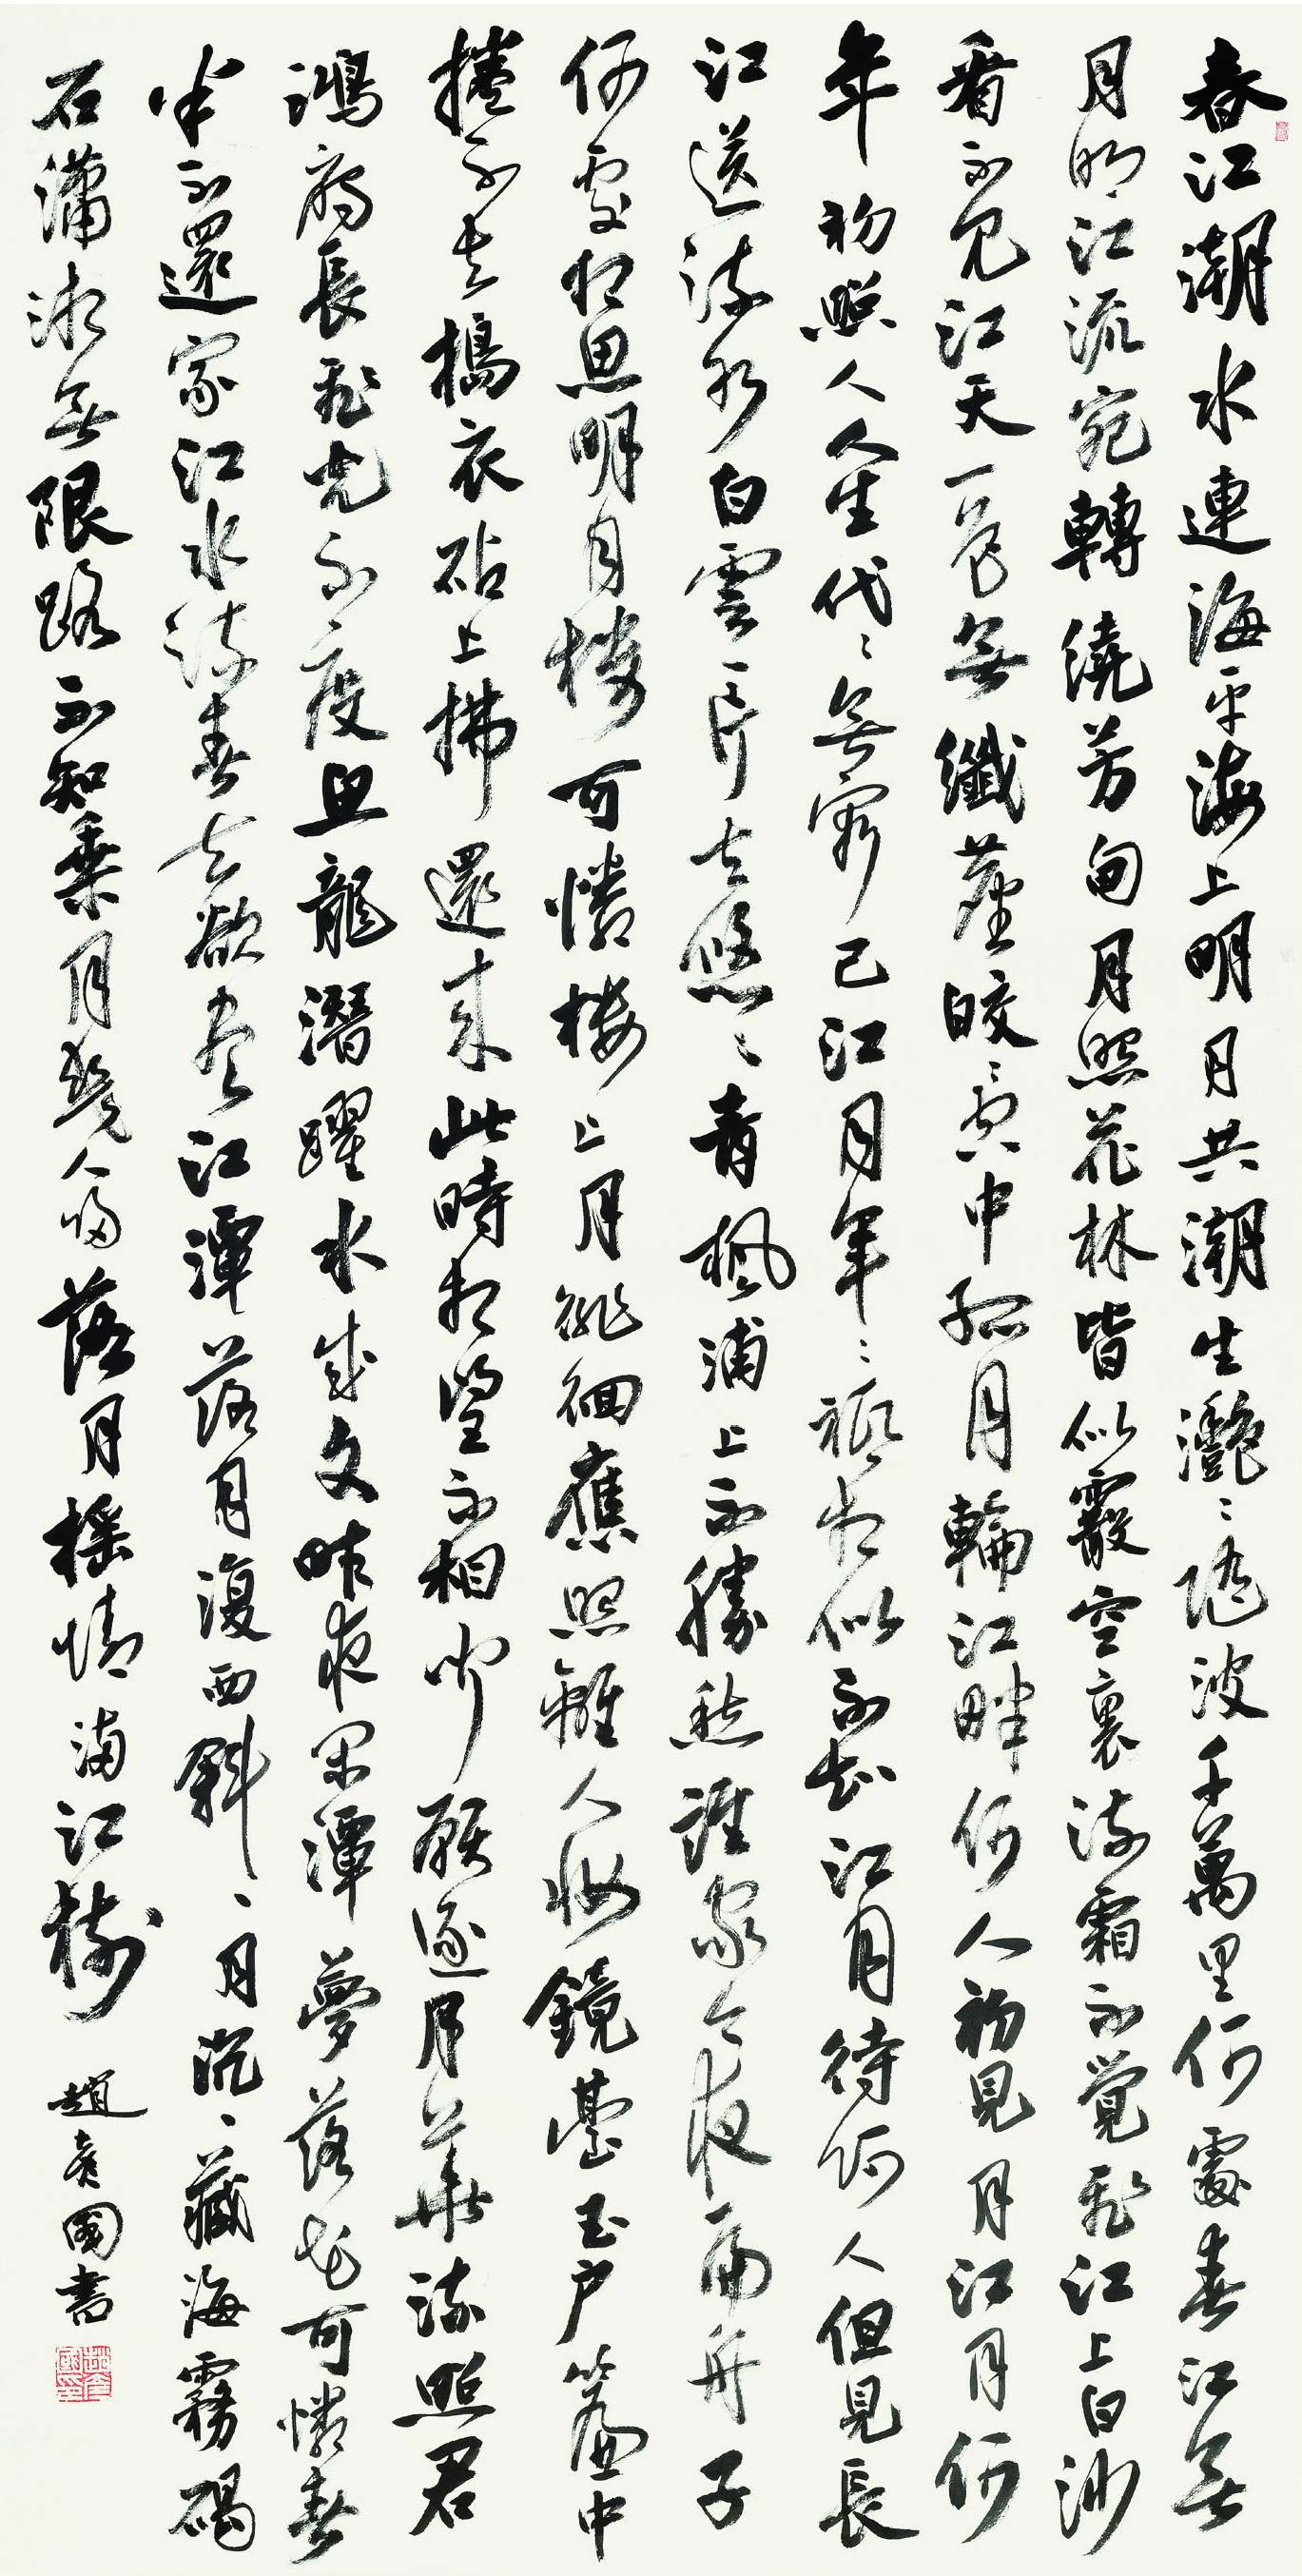 春江潮水連海平海上明月共潮生灧〻隨波千萬里何處春江無
月明江流宛轉繞芳甸月照花林皆似霰空裏流霜不覺飛江上白沙
看不見江天一色無纖塵皎〻空中孤月輪江畔何人初見月江月何
年初照人人生代〻無窮已江月年〻祇相似不知江月待何人但見長
江送流水白雲一片去悠〻青楓浦上不勝愁誰家今夜扁舟子
何處相思明月樓可憐樓上月徘徊應照離人妝鏡臺玉户簾中
捲不去搗衣砧上拂還來此時相望不相聞願逐月華流照君
鴻雁長飛光不度魚龍潛躍水成文昨夜閑潭夢落花可憐春
半不還家江水流春去欲盡江潭落月復西斜〻月沉〻藏海霧碣
石瀟湘無限路不知乘月幾人歸落月搖情滿江樹
趙奎國書